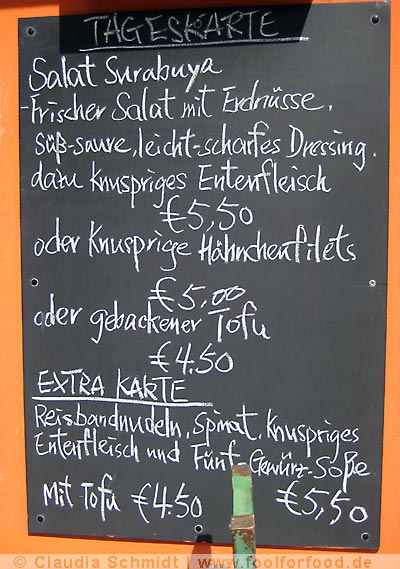 TAGESKARTE
Salat Surabuya
-Frischer Salat mit Erdnüsse,
süß-saure, leicht-scharfes Dressing.
dazu knuspriges Entenfleisch
€5,50
oder knusprige Hähnchenfilets
€5,00
oder gebackener Tofu
€4.50
EXTRA KARTE
Reisbandnudeln, Spinat, knuspriges
Entenfleisch und Fünf-Gewürz-Soße
Mit Tofu €4.50 €5,50
© Claudia Schmidt | www.foolforfood.de